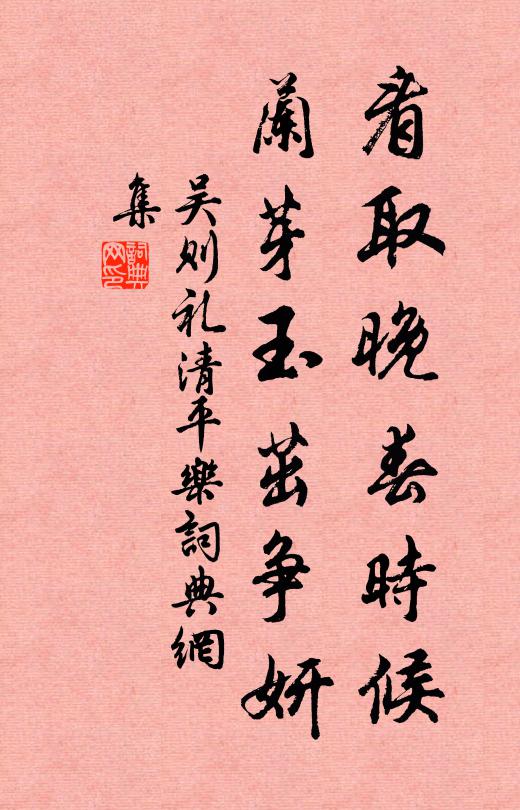 看取晚春時候
蘭芽玉茁争妍
吴则礼清平樂詞典網
集
詞典网印